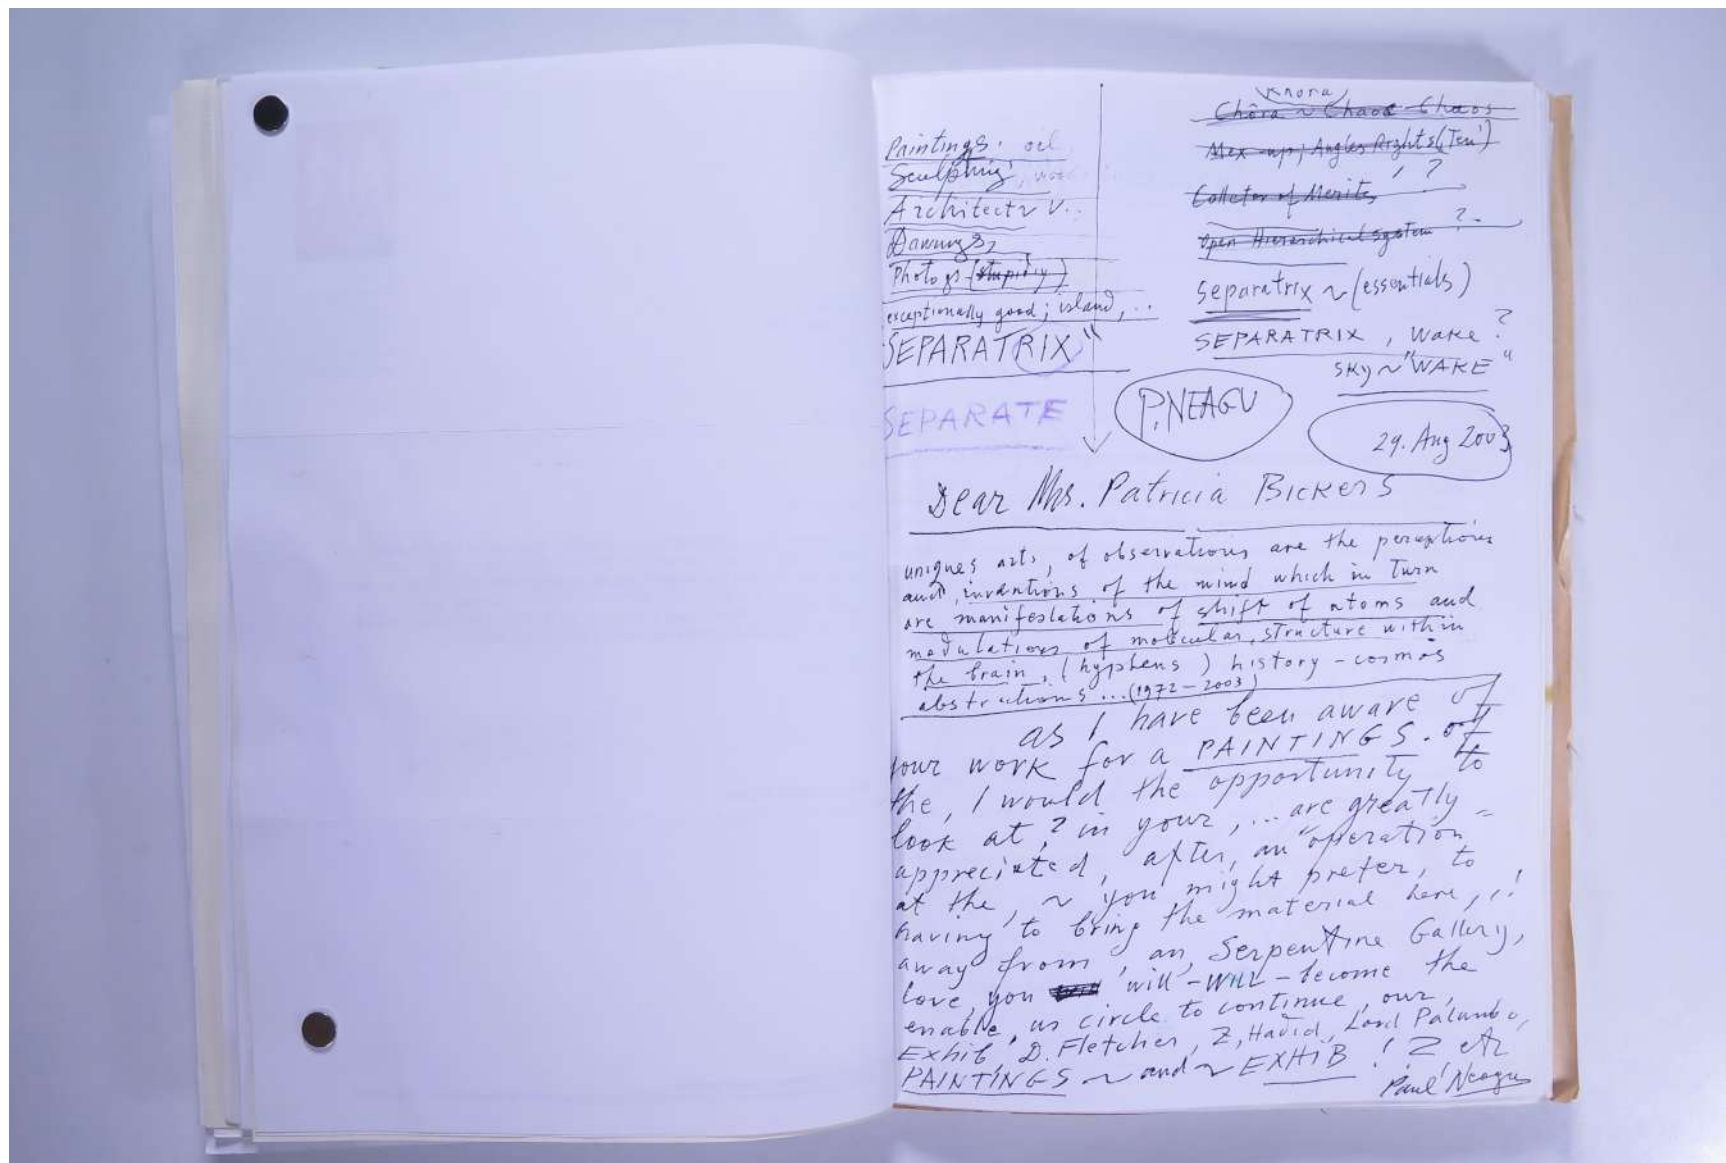 Paintings. oil
Sculpting, wood
Architect~ v..
Dawings,
Photogs (stupidiy)
exceptionally good; island, ...
"SEPARATRIX"
SEPARATE
Khora
Chôra ~ Chaos Chaos
Mex-up, Angles Rights (Ten')
, ?
Colletor of Merits
Open Hierarchical system ?.
Separatrix ~ (essentials)
SEPARATRIX, Wake ?
SKY ~ "WAKE"
P. NEAGU
29. Aug 2003
Dear Ms. Patricia Bickers
uniques arts, of observations are the perceptions
and, inventions of the mind which in Turn
are manifestations of shift of atoms and
modulations of molecular, structure within
the brain, (hyphens) history - cosmos
abstractions ... (1972 - 2003)
as I have been aware of
your work for a PAINTINGS. of
the, I would the opportunity to
look at ? in your, ... are greatly
appreciated, after, an "operation"
at the, ~ you might prefer, to
having to bring the material here, ,!
away from, an, Serpentine Gallery,
love, you will - WILL - become the
enable, us circle to continue, our,
Exhib, D. Fletcher, Z, Hadid, Lord Palumbo,
PAINTINGS ~ and ~ EXHIB ! Z
Paul Neagu